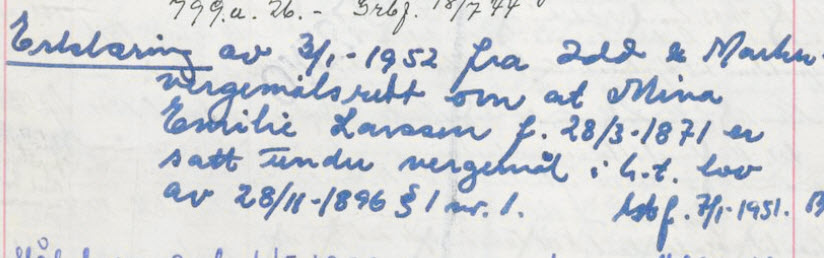 799.a. 26. - Dbf. 18/7 44
Erklæring av 3/1-1952 fra Idd & Marker
vergemålsrett om at Mina
Emilie Larssen f. 28/3-1871 er
satt under vergemål i h.t. lov
av 28/11-1896 § 1 nr. 1. dbf. 7/1-1951. B